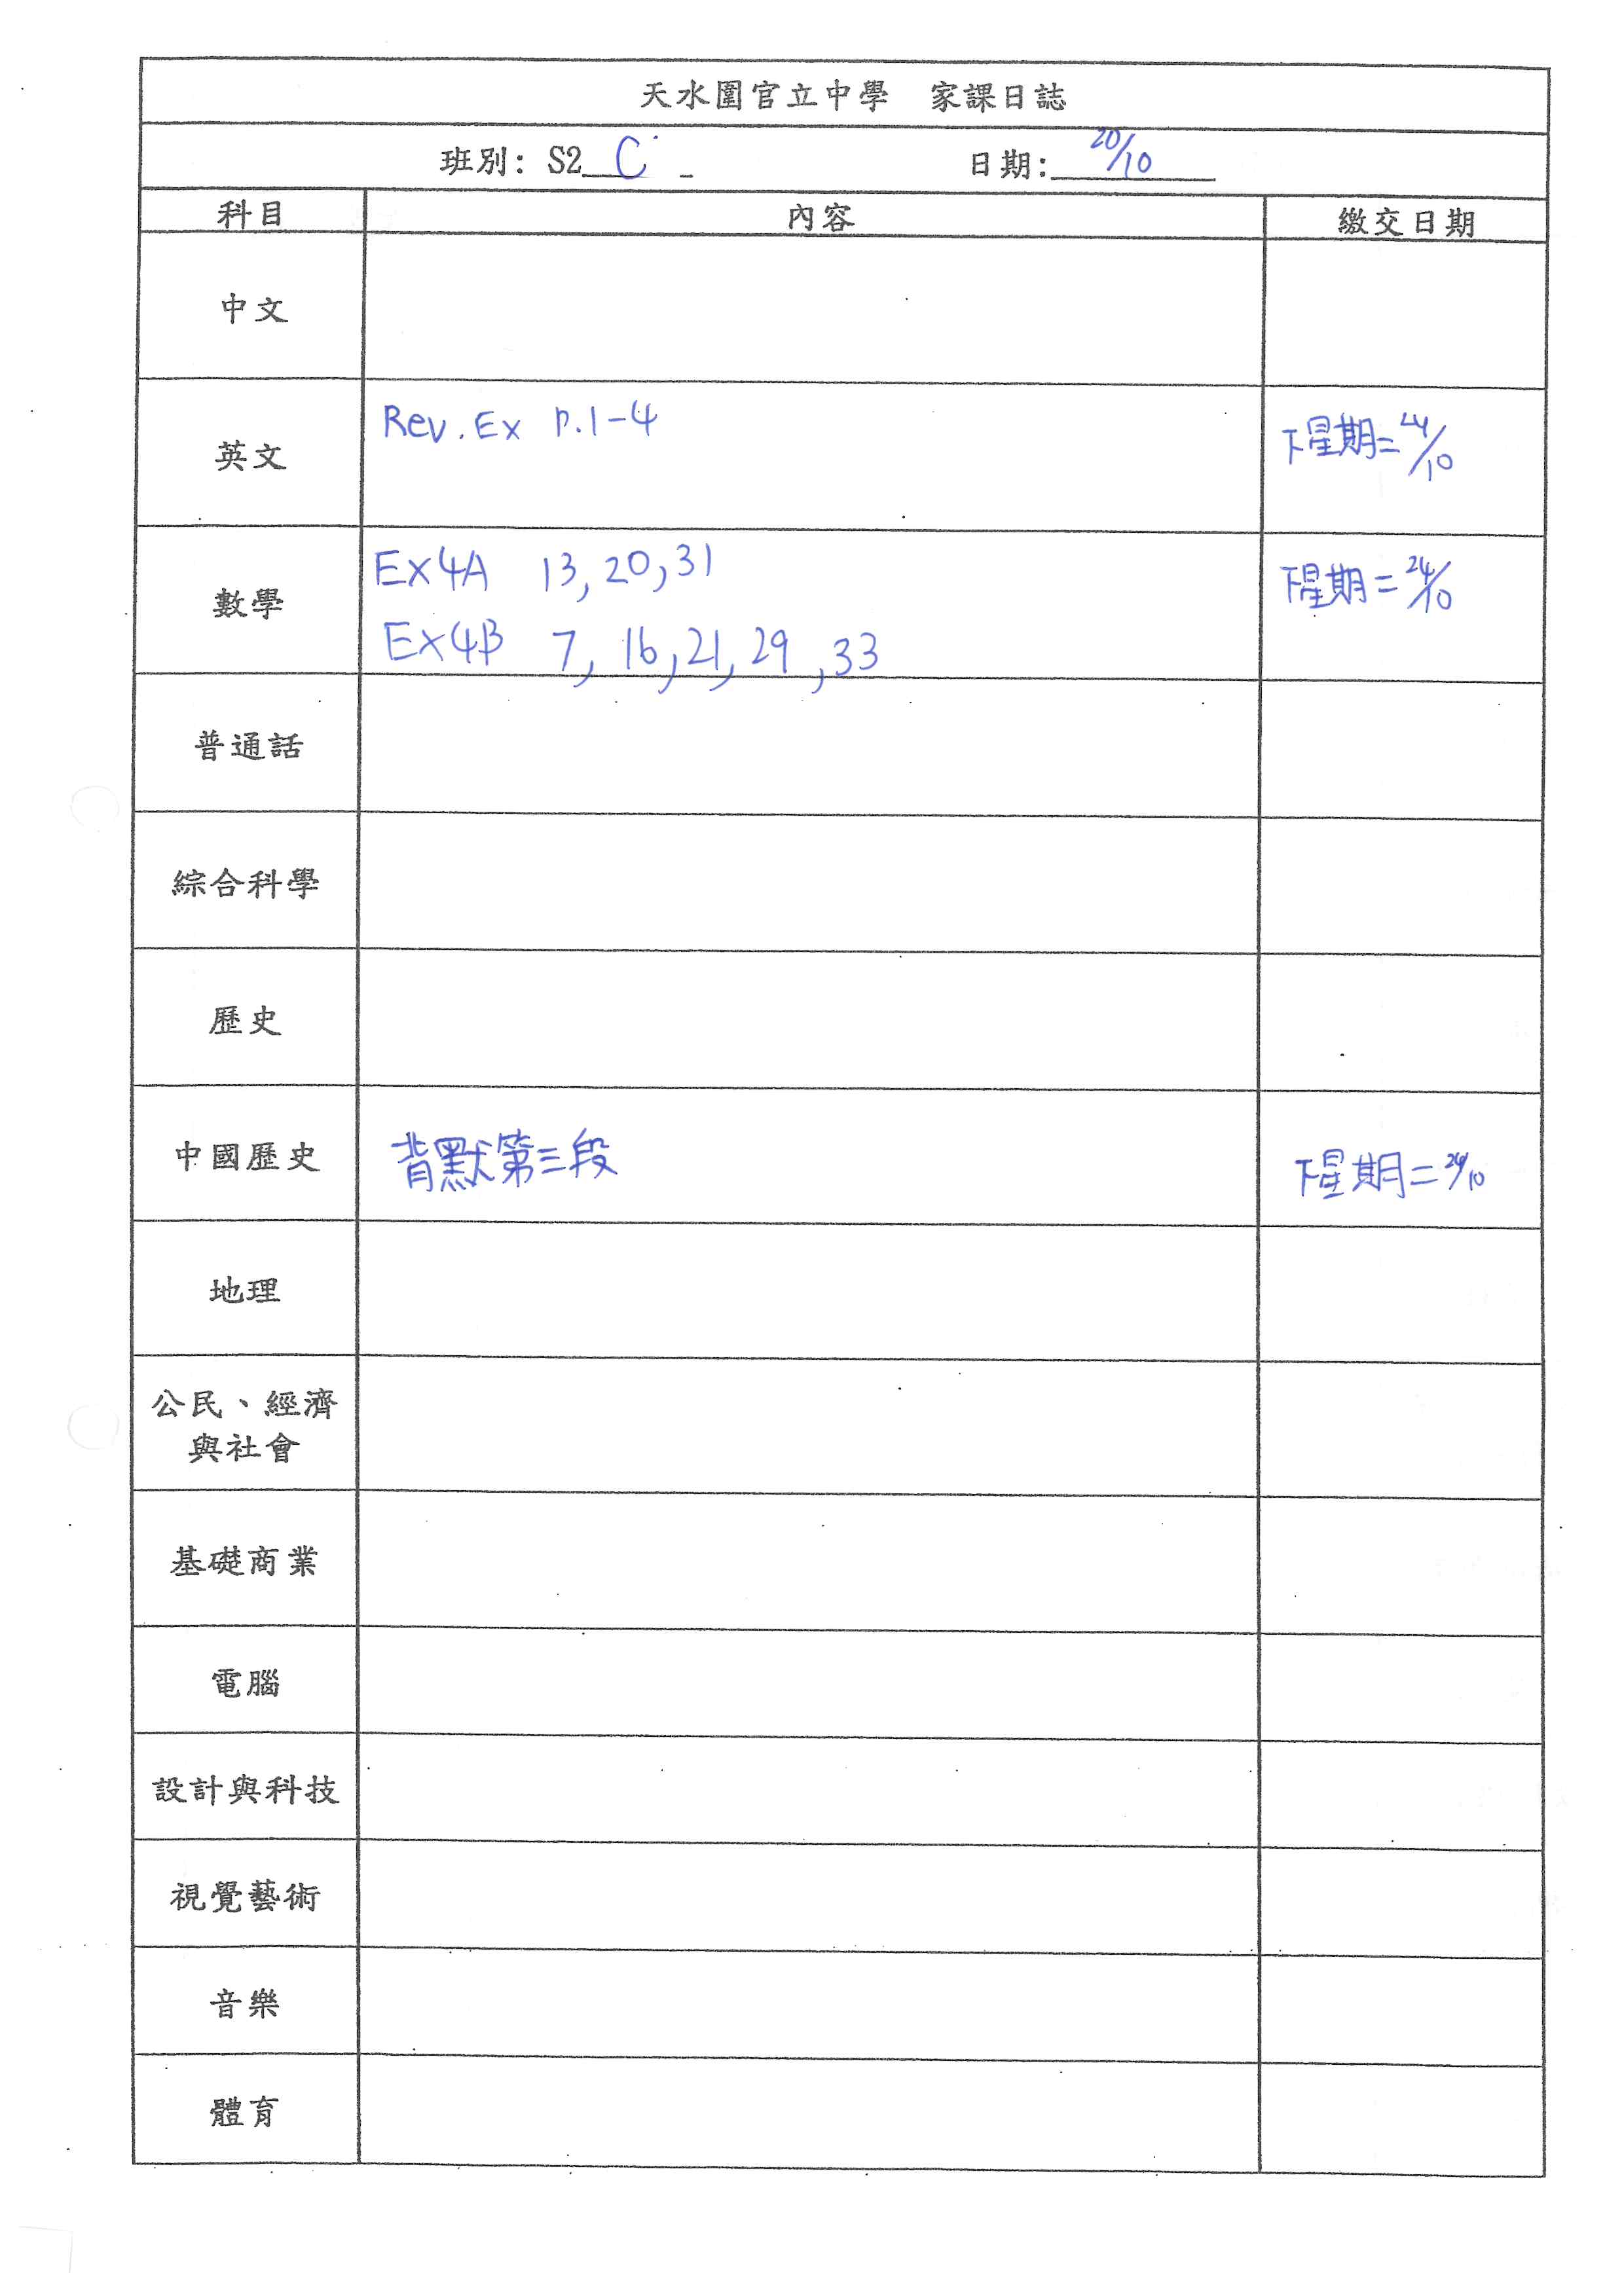 天水圍官立中學 家課日誌
班別: S2 C 日期: 20/10
科目 內容 繳交日期
中文
英文 Rev. Ex p.1-4 下星期二 24/10
數學 Ex4A 13, 20, 31 下星期二 24/10
Ex4B 7, 16, 21, 29, 33
普通話
綜合科學
歷史
中國歷史 背默第三段 下星期二 24/10
地理
公民、經濟
與社會
基礎商業
電腦
設計與科技
視覺藝術
音樂
體育